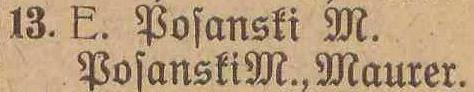 13. E. Poſanski M.
PoſanskiM., Maurer.